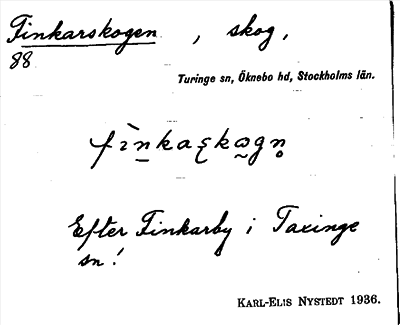 Finkarskogen , skog,
88
Turinge sn, Öknebo hd, Stockholms län.
Efter Finkarby i Taxinge
sn!
KARL-ELIS NYSTEDT 1936.